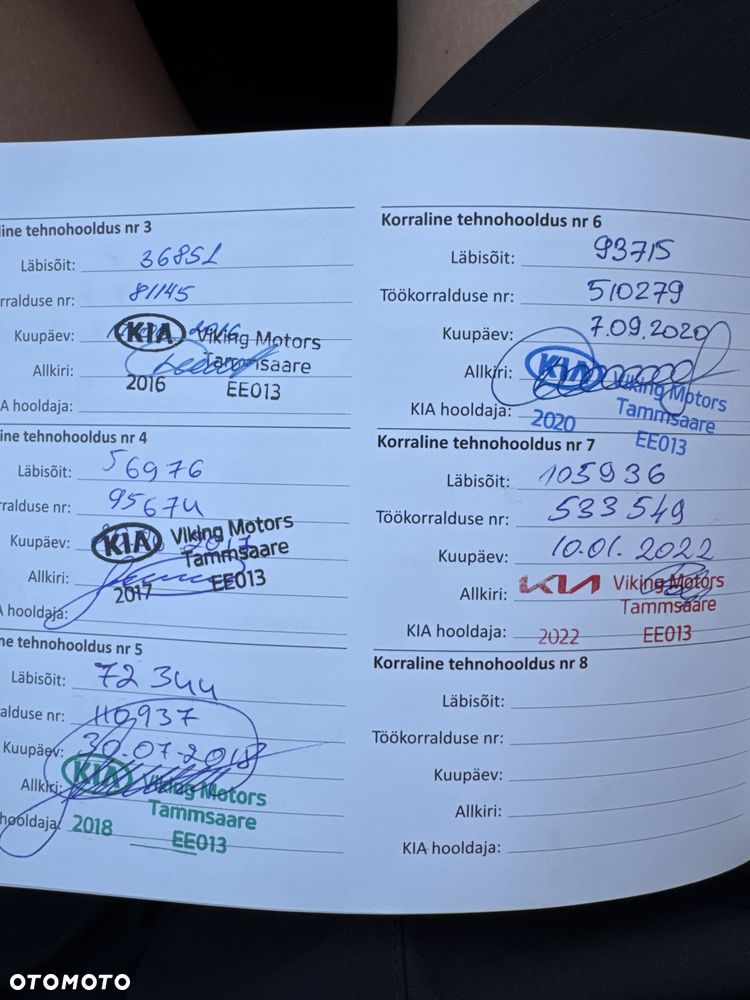 line tehnohooldus nr 3
Läbisõit: 36851
rralduse nr: 81145
Kuupäev: 2016
Allkiri:
A hooldaja:
KIA Viking Motors
Tammsaare
2016 EE013
ine tehnohooldus nr 4
Läbisõit: 56976
rralduse nr: 95674
Kuupäev: 2017
Allkiri:
A hooldaja:
KIA Viking Motors
Tammsaare
2017 EE013
ne tehnohooldus nr 5
Läbisõit: 72344
alduse nr: 110937
Kuupäev: 30.07.2018
Allkiri:
hooldaja:
KIA Viking Motors
Tammsaare
2018 EE013
Korraline tehnohooldus nr 6
Läbisõit: 93715
Töökorralduse nr: 510279
Kuupäev: 7.09.2020
Allkiri:
KIA hooldaja:
KIA Viking Motors
Tammsaare
2020 EE013
Korraline tehnohooldus nr 7
Läbisõit: 105936
Töökorralduse nr: 533549
Kuupäev: 10.01.2022
Allkiri:
KIA hooldaja:
KIA Viking Motors
Tammsaare
2022 EE013
Korraline tehnohooldus nr 8
Läbisõit:
Töökorralduse nr:
Kuupäev:
Allkiri:
KIA hooldaja:
OTOMOTO